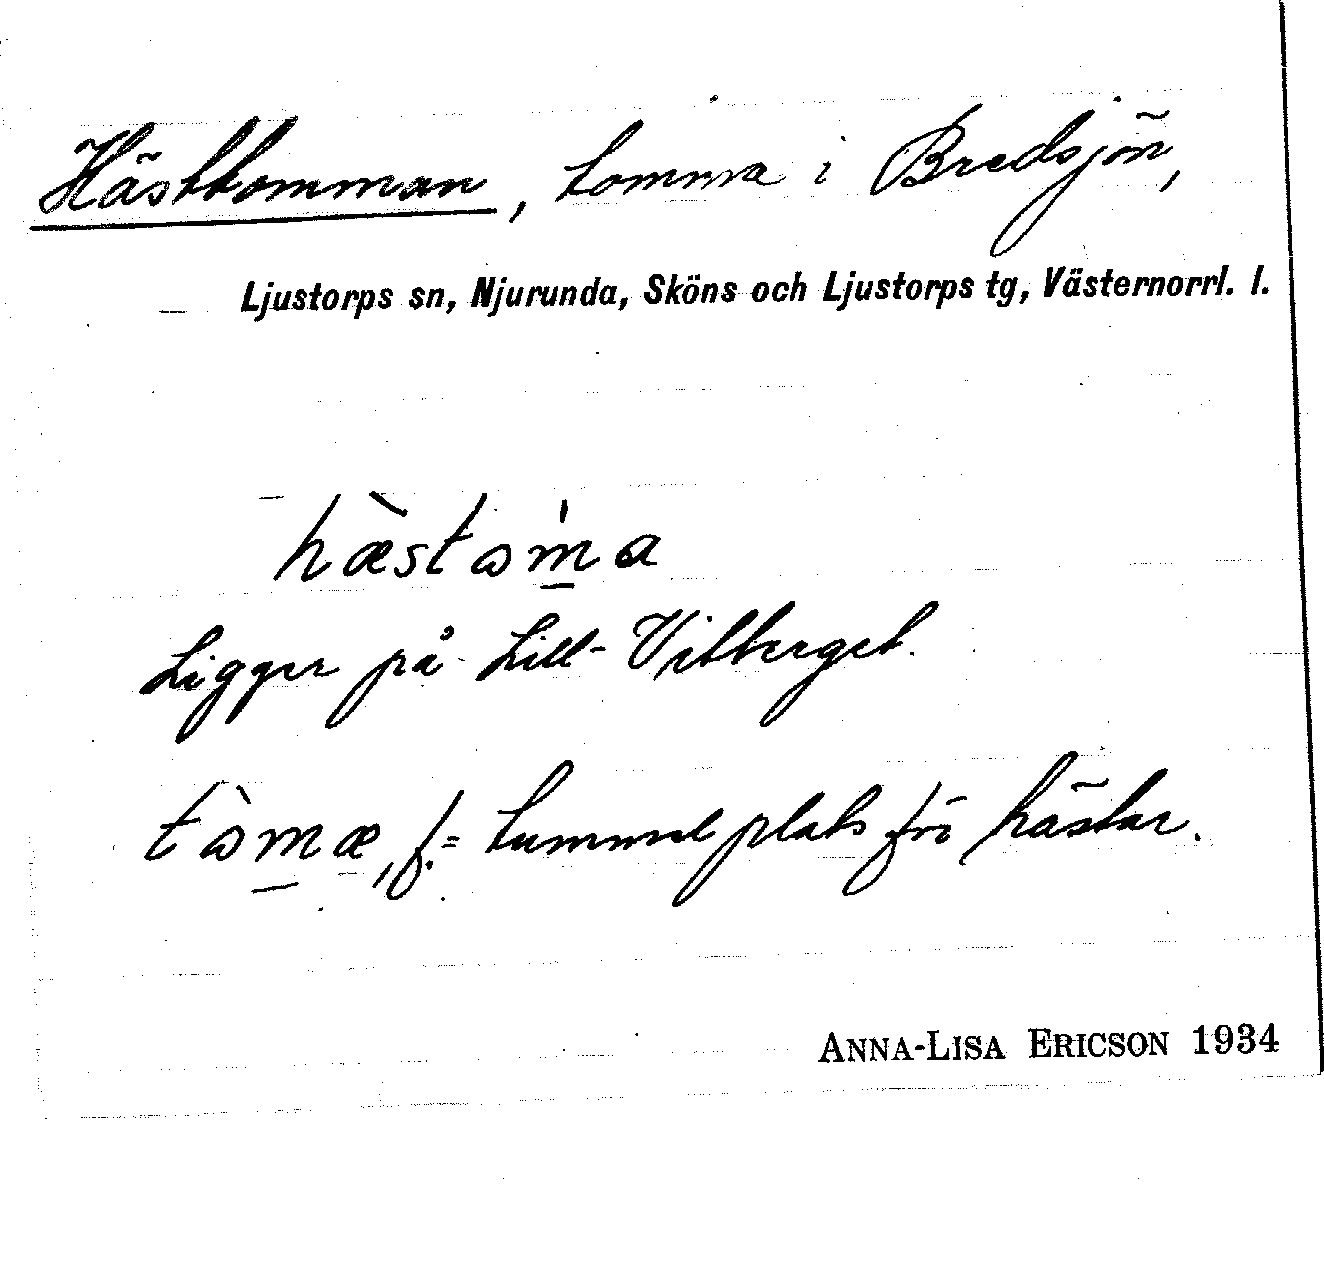 Hästtomman, tomma i Bredsjön,
Ljustorps sn, Njurunda, Sköns och Ljustorps tg, Västernorrl. l.
hæ̀stωm̲̍a
Ligger på Lill-Vitberget.
tὼm̲æ, f. = tummelplats för hästar.
ANNA-LISA ERICSON 1934